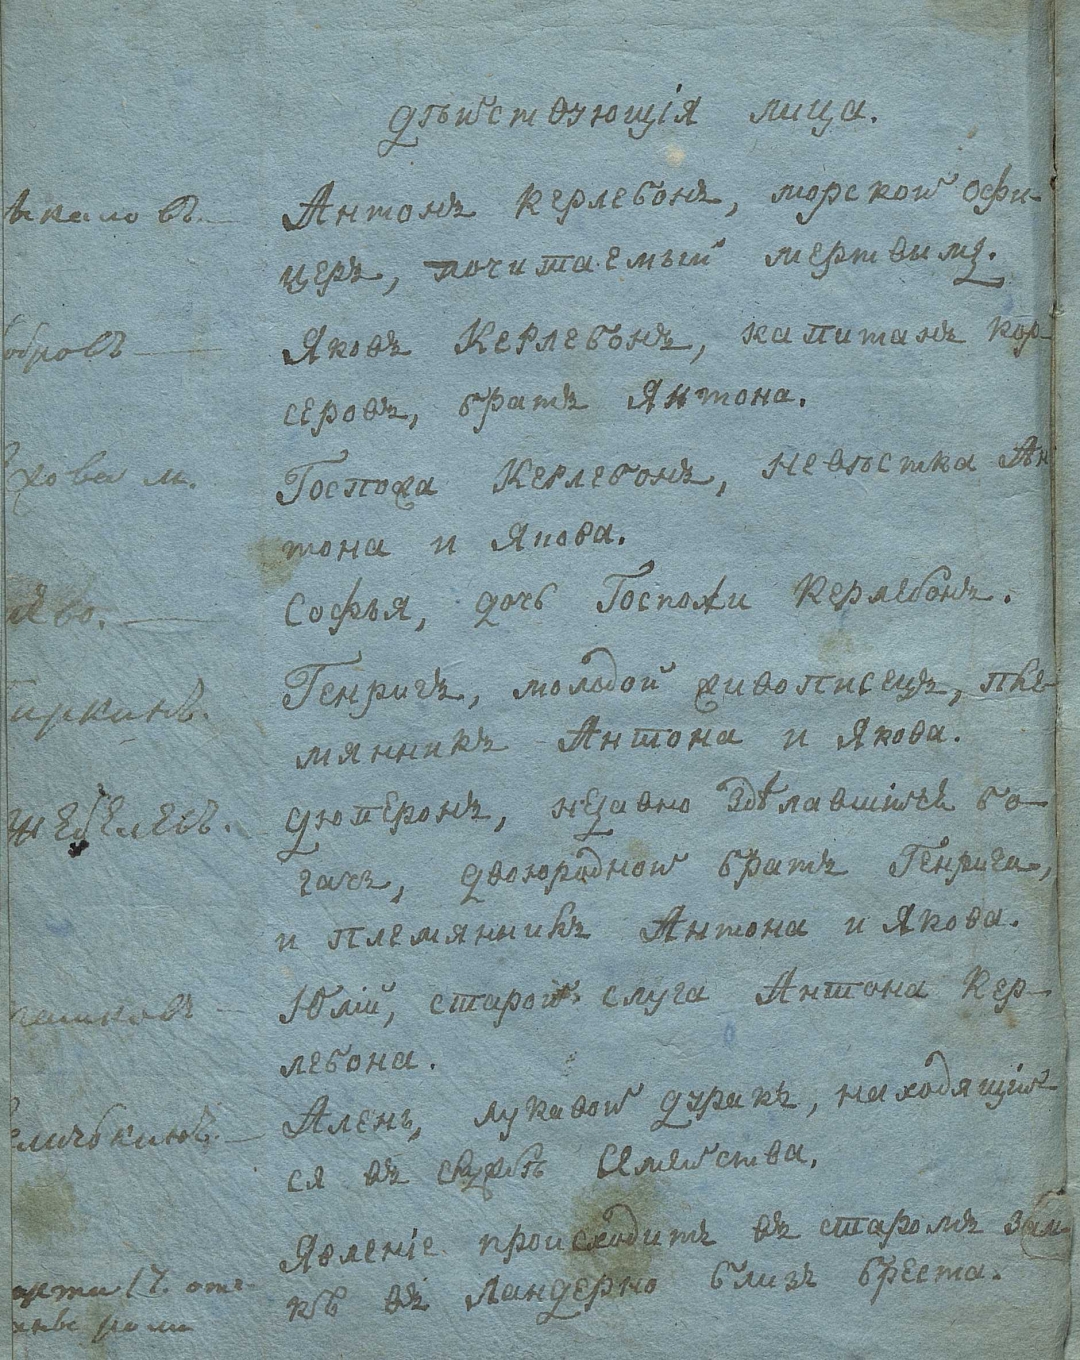 дѣйствующія лица.
Антонъ Керлебонъ, морской офи-
церъ, почитаемый мертвымъ.
Яковъ Керлебонъ, капитанъ кор-
серовъ, братъ Антона.
Госпожа Керлебонъ, невѣстка Ан
тона и Якова.
Софья, дочь Госпожи Керлебонъ.
Генрихъ, молодой живописецъ, пле-
мянникъ Антона и Якова.
Дюперонъ, недавно здѣлавшійся бо-
гачъ, двоюродной братъ Генриха,
жебелевъ.
и племянникъ Антона и Якова.
Юлій, старой слуга Антона Кер-
лебона.
Аленъ, лукавой дуракъ, находящій-
ся въ службѣ Семейства.
Явленіе происходитъ въ старомъ зам-
кѣ въ Ландерно близъ Бреста.